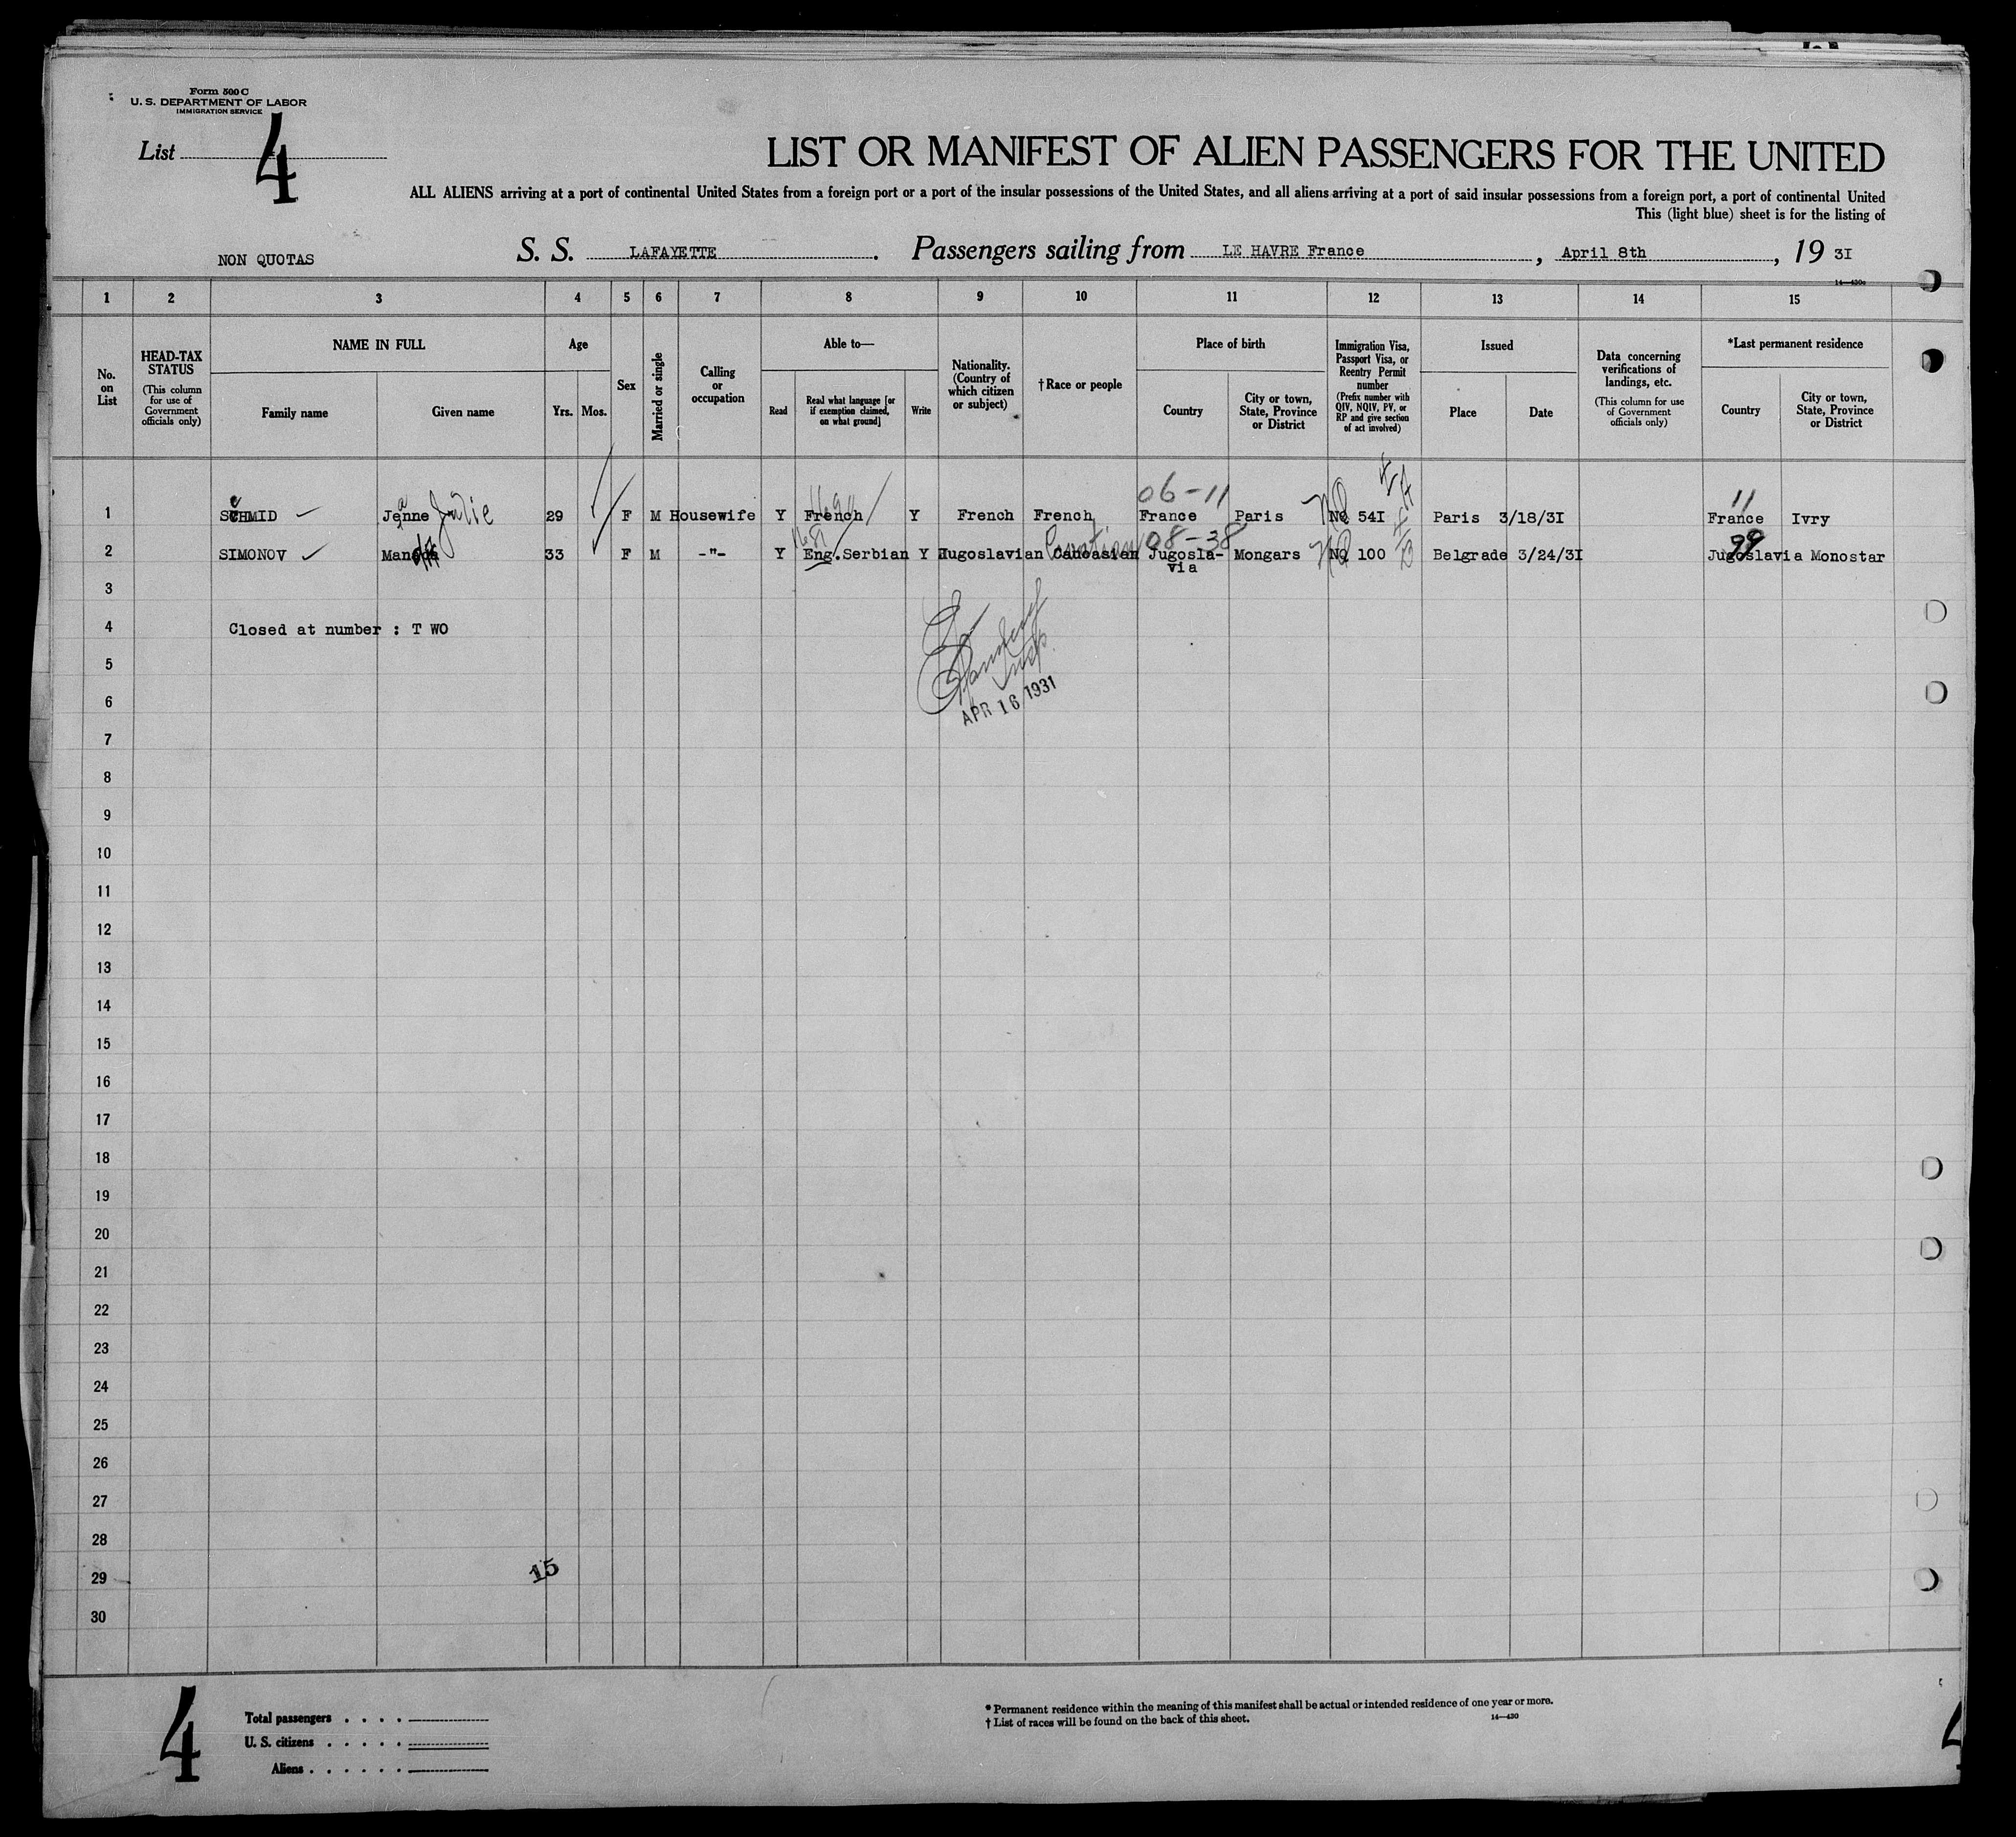 Form 500 C
U. S. DEPARTMENT OF LABOR
IMMIGRATION SERVICE
List 4
LIST OR MANIFEST OF ALIEN PASSENGERS FOR THE UNITED
ALL ALIENS arriving at a port of continental United States from a foreign port or a port of the insular possessions of the United States, and all aliens arriving at a port of said insular possessions from a foreign port, a port of continental United
This (light blue) sheet is for the listing of
NON QUOTAS S. S. LAFAYETTE . Passengers sailing from LE HAVRE France , April 8th , 19 3I
14—430c
1 2 3 4 5 6 7 8 9 10 11 12 13 14 15
No. on List
HEAD-TAX STATUS
(This column for use of Government officials only)
NAME IN FULL
Family name Given name
Age
Yrs. Mos.
Sex
Married or single
Calling or occupation
Able to—
Read
Read what language [or if exemption claimed, on what ground]
Write
Nationality. (Country of which citizen or subject)
† Race or people
Place of birth
Country
City or town, State, Province or District
Immigration Visa, Passport Visa, or Reentry Permit number
(Prefix number with QIV, NQIV, PV, or RP and give section of act involved)
Issued
Place Date
Data concerning verifications of landings, etc.
(This column for use of Government officials only)
*Last permanent residence
Country
City or town, State, Province or District
06-11 11
1 SCHMID Jeanne Julie 29 F M Housewife Y French Y French French France Paris NQ 54I Paris 3/18/3I France Ivry
08-38 99
2 SIMONOV 33 F M -"- Y Eng.Serbian Y Jugoslavian Caucasian Jugosla- Mongars NQ 100 Belgrade 3/24/3I Jugoslavia Monostar
via
3
4 Closed at number : T WO
5
6
APR 16 1931
7
8
9
10
11
12
13
14
15
16
17
18
19
20
21
22
23
24
25
26
27
28
29
15
30
4
Total passengers . . . .
U. S. citizens . . . . .
Aliens . . . . . .
* Permanent residence within the meaning of this manifest shall be actual or intended residence of one year or more.
† List of races will be found on the back of this sheet.
14—430